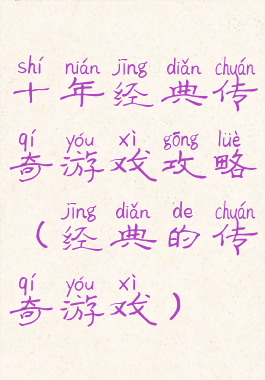 shí nián jīng diǎn chuán
十年经典传
qí yóu xì gōng lüè
奇游戏攻略
jīng diǎn de chuán
（经典的传
qí yóu xì
奇游戏）